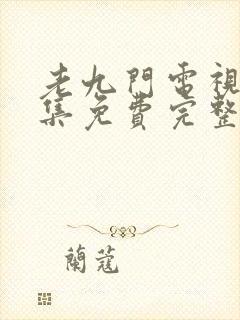 老九門電視
集免費完整
蘭蔻